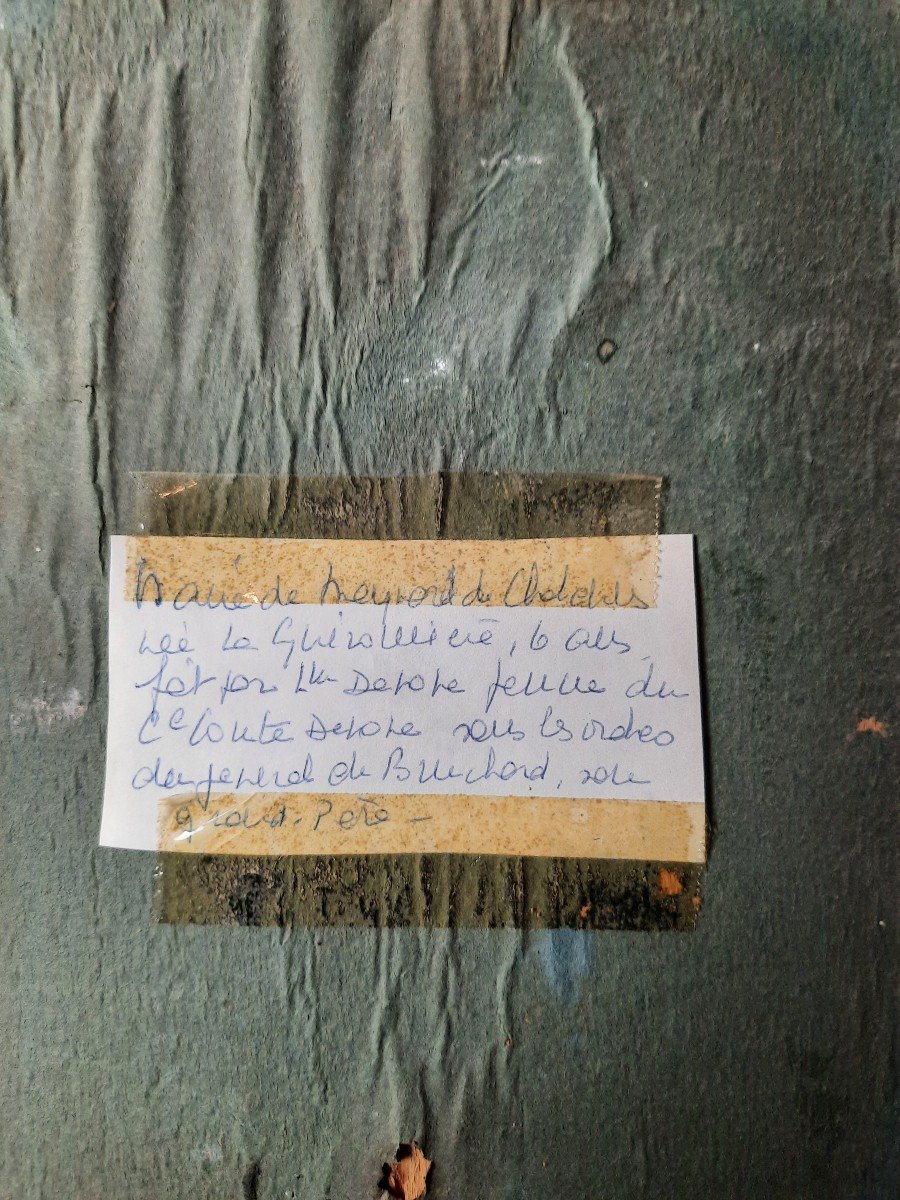 Marie de Meynard de
née La Guéronnière, 6 ans
fait par Delore femme du
Cte Comte Delore sous les ordres
du général de Bruchard, son
grand-Père -